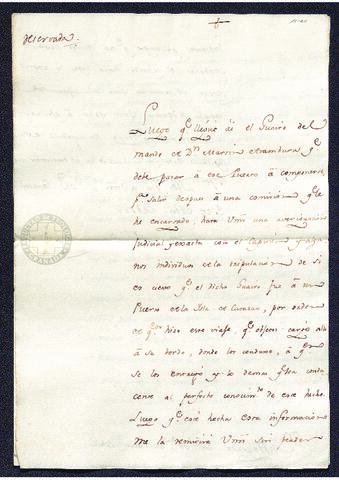 reservada.
Luego qe llegue aì el Guairo del
mando de Dn Martin
debe pasar â ese Puerto â componerse,
pa salir despues â una comision qe le
he encargado, hara Vm una averiguacion
Judicial y exacta con el Capitan y algu-
nos individuos de la tripulacion de si
es cierto qe el dicho Guairo fue â un
Puerto de la Isla de Curazao, por orden
de qn hizo este viaje, qe efectos cargó alli
â su bordo, donde los condujo, â qn
se los entregó y lo demas qe sea condu-
cente al perfecto conocimto de este hecho.
Luego qe esté hecha esta informacion
me la remitirá Vm sin perder